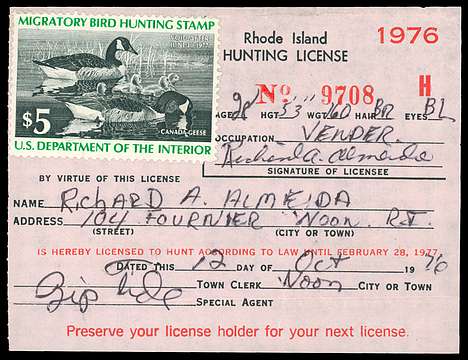 MIGRATORY BIRD HUNTING STAMP
VOID AFTER
JUNE 30, 1977
CANADA GEESE
$5
U.S. DEPARTMENT OF THE INTERIOR
Rhode Island 1976
HUNTING LICENSE
No 9708 H
AGE 28 HGT WGT HAIR BR EYES BL
OCCUPATION VENDER
Richard A. Almeida
SIGNATURE OF LICENSEE
BY VIRTUE OF THIS LICENSE
NAME RICHARD A. ALMEIDA
ADDRESS 104 FOURNIER WOON. R.I.
(STREET) (CITY OR TOWN)
IS HEREBY LICENSED TO HUNT ACCORDING TO LAW UNTIL FEBRUARY 28, 1977
DATED THIS 12 DAY OF Oct 19 76
TOWN CLERK Woon CITY OR TOWN
SPECIAL AGENT
Preserve your license holder for your next license.